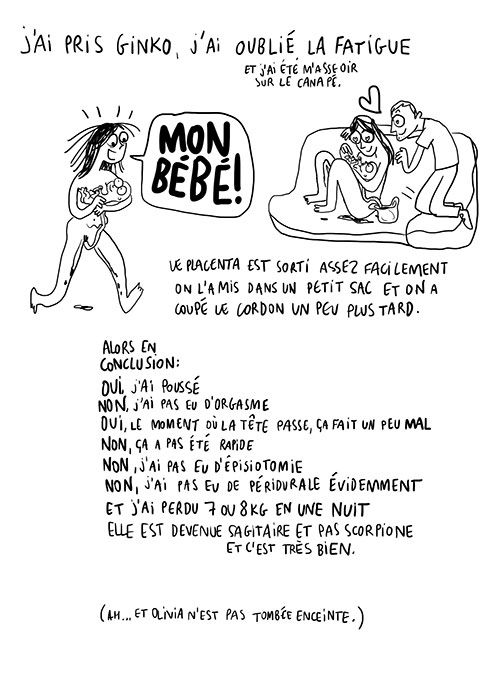 J'AI PRIS GINKO, J'AI OUBLIÉ LA FATIGUE
ET J'AI ÉTÉ M'ASSEOIR
SUR LE CANAPÉ.
MON
BÉBÉ!
LE PLACENTA EST SORTI ASSEZ FACILEMENT
ON L'A MIS DANS UN PETIT SAC ET ON A
COUPÉ LE CORDON UN PEU PLUS TARD.
ALORS EN
CONCLUSION:
OUI, J'AI POUSSÉ
NON, J'AI PAS EU D'ORGASME
OUI, LE MOMENT OÙ LA TÊTE PASSE, ÇA FAIT UN PEU MAL
NON, ÇA A PAS ÉTÉ RAPIDE
NON, J'AI PAS EU D'ÉPISIOTOMIE
NON, J'AI PAS EU DE PÉRIDURALE ÉVIDEMMENT
ET J'AI PERDU 7 OU 8 KG EN UNE NUIT
ELLE EST DEVENUE SAGITAIRE ET PAS SCORPIONE
ET C'EST TRÈS BIEN.
(AH... ET OLIVIA N'EST PAS TOMBÉE ENCEINTE.)